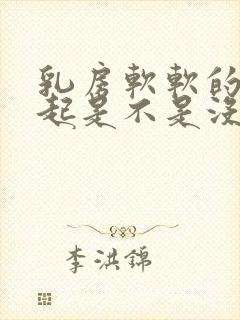 乳房軟軟的
起是不是沒
李洪錦